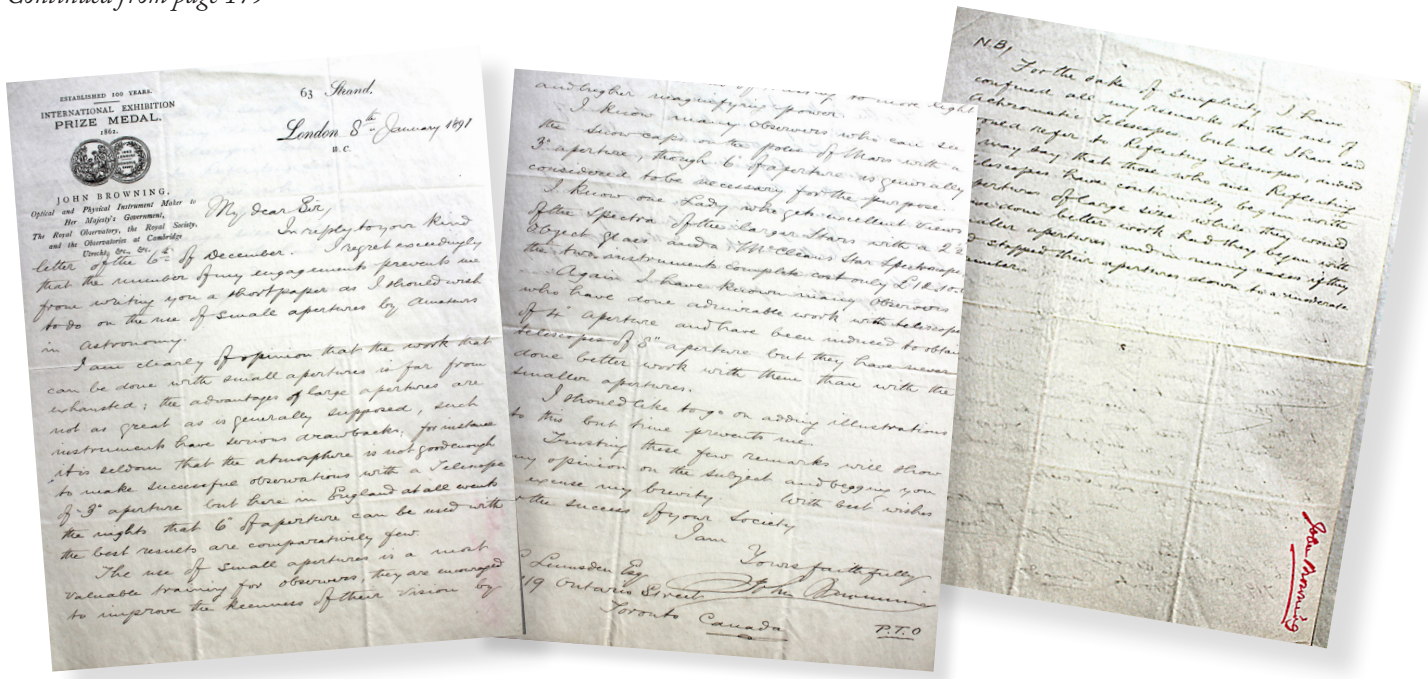 Continued from page 179
ESTABLISHED 100 YEARS.
INTERNATIONAL EXHIBITION
PRIZE MEDAL.
1862.
JOHN BROWNING,
Optical and Physical Instrument Maker to
Her Majesty's Government,
The Royal Observatory, the Royal Society,
and the Observatories at Cambridge
Utrecht, &c. &c.
63 Strand,
London 8th January 1891
W.C.
My dear Sir,
In reply to your kind
letter of the 6th of December. I regret exceedingly
that the number of my engagements prevents me
from writing you a short paper as I should wish
to do on the use of small apertures by Amateurs
in astronomy.
I am clearly of opinion that the work that
can be done with small apertures is far from
exhausted; the advantages of large apertures are
not as great as is generally supposed, such
instruments have serious drawbacks, for instance
it is seldom that the atmosphere is not good enough
to make successful observations with a Telescope
of 3" aperture but here in England at all events
the nights that 6" of aperture can be used with
the best results are comparatively few.
The use of small apertures is a most
valuable training for observers, they are encouraged
to improve the keenness of their vision by
more light
and higher magnifying power.
I know many observers who can see
the snow caps on the poles of Mars with a
3" aperture, though 6" of aperture is generally
considered to be necessary for the purpose.
I know one Lady who gets excellent views
of the Spectra of the larger Stars with a 2"
object glass and a McClean's Star Spectroscope
the two instruments complete cost only
Again I have known many observers
who have done admirable work with telescopes
of 4" aperture and have been induced to obtain
telescopes of 8" aperture but they have never
done better work with them than with the
smaller apertures.
I should like to go on adding illustrations
to this but time prevents me.
Trusting these few remarks will show
my opinion on the subject and begging you
excuse my brevity. With best wishes
the success of your Society
I am
Yours faithfully
John Browning
Lumsden Esq
19 Ontario Street
Toronto Canada
P.T.O
N.B,
For the sake of simplicity I have
confined all my remarks to the use of
achromatic Telescopes, but all I have said
would refer to Reflecting Telescopes, indeed
may say that those who use Reflecting
Telescopes have continually begun with
apertures of large size, while they would
have done better work had they begun with
smaller apertures and in many cases if they
had stopped their apertures down to a moderate
John Browning